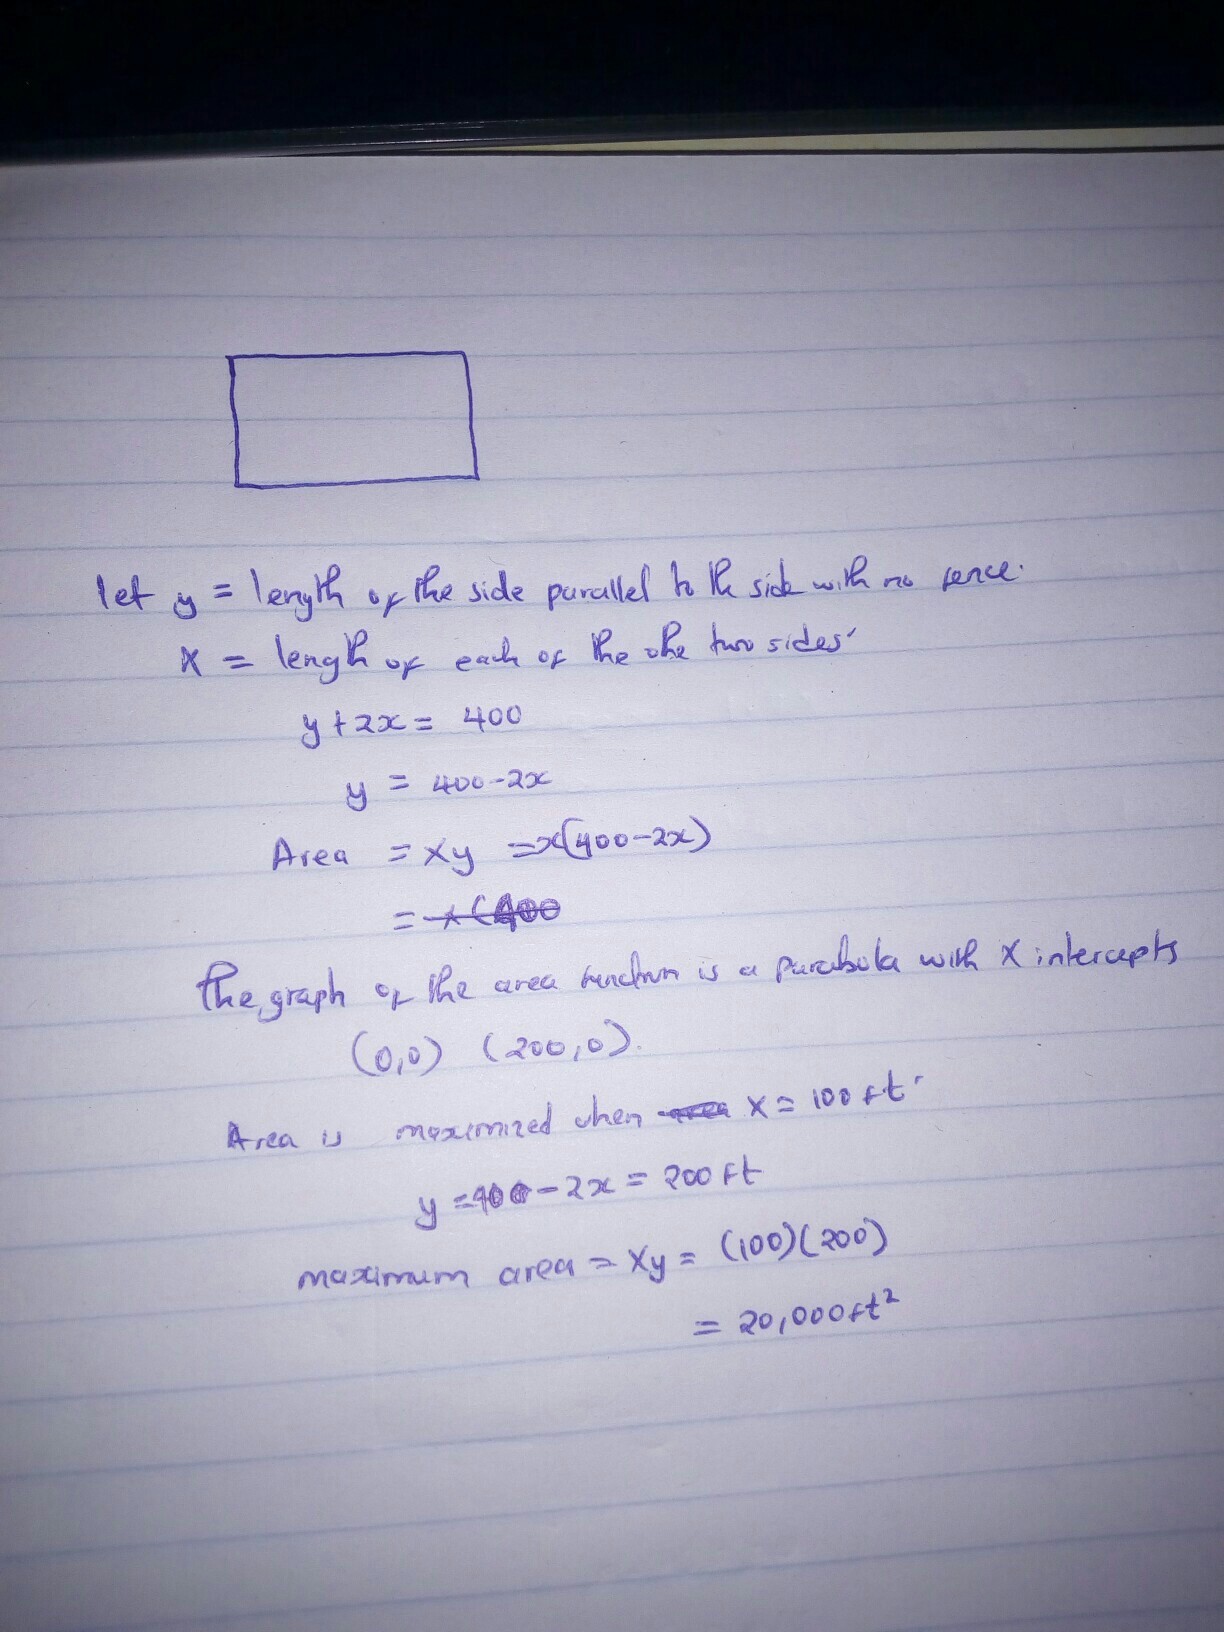 let y = length of the side parallel to the side with no fence.
x = length of each of the two sides
y + 2x = 400
y = 400-2x
Area = xy = x(400-2x)
= x(400
The graph of the area function is a parabola with x intercepts
(0,0) (200,0).
Area is maximized when area x = 100 ft.
y = 400-2x = 200 ft
maximum area = xy = (100)(200)
= 20,000 ft²